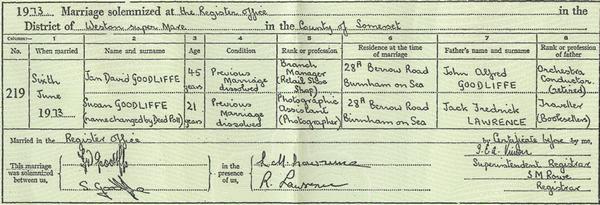 1973. Marriage solemnized at the Register Office in the
District of Weston super Mare in the County of Somerset
Columns:— 1 2 3 4 5 6 7 8
No. When married Name and surname Age Condition Rank or profession Residence at the time of marriage Father's name and surname Rank or profession of father
219 Sixth June 1973
Ian David GOODLIFFE 45 years Previous Marriage dissolved Branch Manager (Retail Shoe Shop) 28A Berrow Road Burnham on Sea John Alfred GOODLIFFE Orchestra Conductor (retired)
Susan GOODLIFFE (name changed by Deed Poll) 21 years Previous Marriage dissolved Photographic Assistant (Photographer) 28A Berrow Road Burnham on Sea Jack Fredrick LAWRENCE Traveller (Booksellers)
Married in the Register Office by Certificate before by me,
This marriage was solemnized between us,
S. Goodliffe
in the presence of us,
L. M. Lawrence
R. Lawrence
Superintendent Registrar
S M Rowe
Registrar